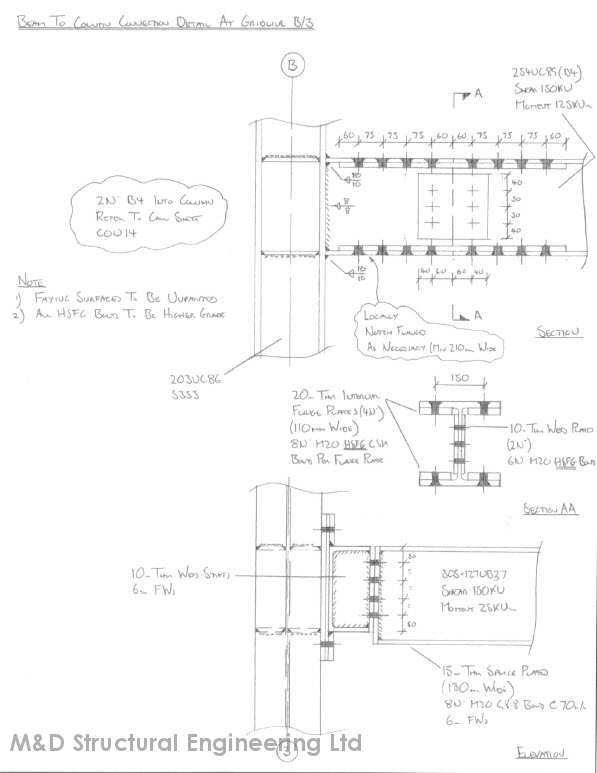 BEAM TO COLUMN CONNECTION DETAIL AT GRIDLINE B/3
B
254UC89 (B4)
SHEAR 150KN
MOMENT 125KNm
A
60 75 75 75 60 60 75 75 75 60
10
10
8
8
10
10
40
50
50
40
40 60 60 40
A
2No B4 INTO COLUMN
REFER TO CALC SHEET
CON14
NOTE
1) FAYING SURFACES TO BE UNPAINTED
2) ALL HSFG BOLTS TO BE HIGHER GRADE
LOCALLY
NOTCH FLANGES
AS NECESSARY (MIN 210mm WIDE
SECTION
203UC86
S355
20mm THK INTERNAL
FLANGE PLATES (4No)
(110mm WIDE)
8No M20 HSFG CSK
BOLTS PER FLANGE PLATE
150
10mm THK WEB PLATES
(2No)
6No M20 HSFG BOLTS
SECTION AA
10mm THK WEB STIFFS
6mm FWs
80
"
"
"
80
305x127UB37
SHEAR 150KN
MOMENT 25KNm
15mm THK SPLICE PLATES
(130mm WIDE)
8No M20 G8.8 BOLTS C 70c/c
6mm FWs
3
M&D Structural Engineering Ltd
ELEVATION